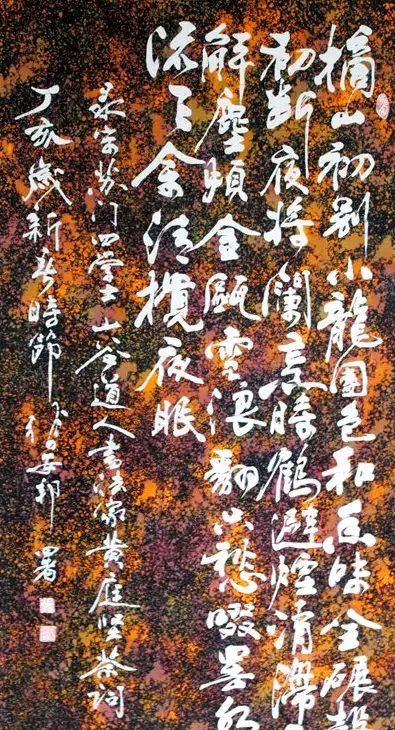 摘山初制小龍團色和香味全碾聲
初断夜将闌烹時鶴避煙消滯
解塵煩金甌雪浪翻只愁啜罢水
流天余清攪夜眠
录宋苏门四学士山谷道人书法家黄庭坚茶词
丁亥歲新春時節安邦署